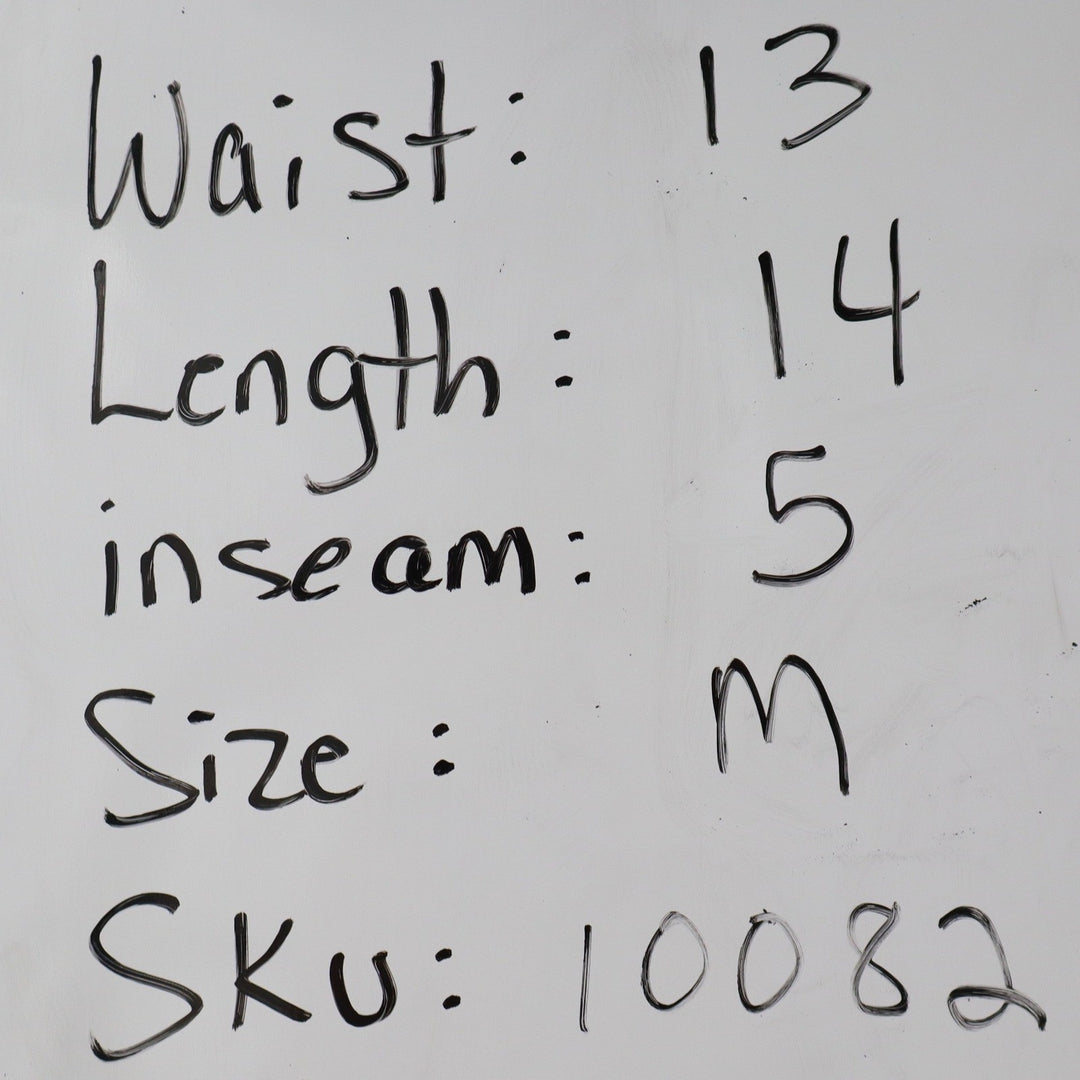 Waist: 13
Length: 14
inseam: 5
Size: M
SKU: 10082